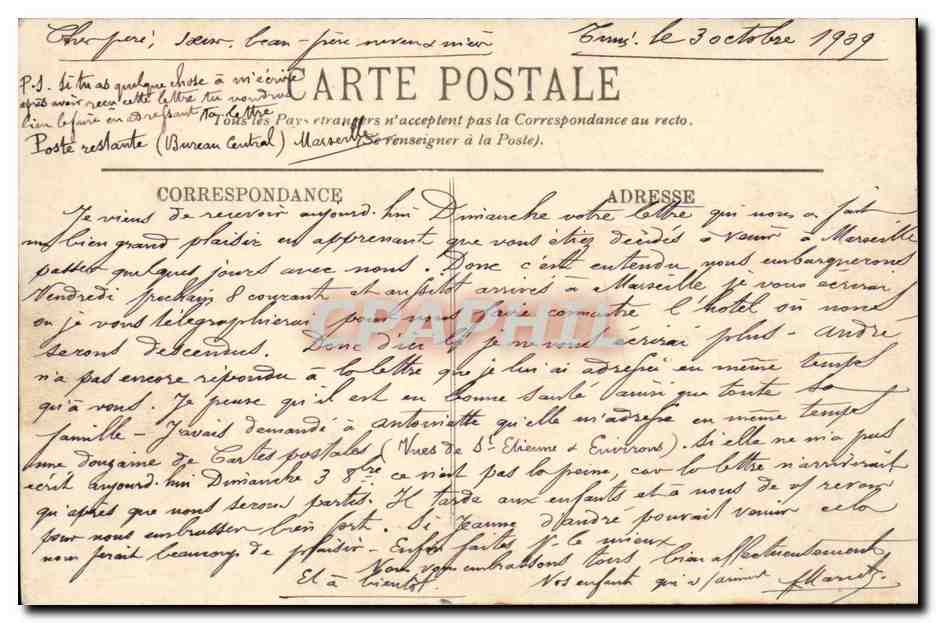 Cher père, sœur, beau-frère neveux & nièce Tunis le 3 octobre 1909
P.S. Si tu as quelque chose à m'écrire
après avoir reçu cette lettre tu voudras
bien le faire en adressant ta lettre
Poste restante (Bureau Central) Marseille
CARTE POSTALE
Tous les Pays étrangers n'acceptent pas la Correspondance au recto.
(Se renseigner à la Poste).
CORRESPONDANCE ADRESSE
Je viens de recevoir aujourd'hui Dimanche votre lettre qui nous a fait
un bien grand plaisir en apprenant que vous étiez décidés à venir à Marseille
passer quelques jours avec nous. Donc c'est entendu nous embarquerons
Vendredi prochain 8 courant et aussitôt arrivés à Marseille je vous écrirai
ou je vous télégraphierai pour vous faire connaitre l'hôtel où nous
serons descendus. Donc d'ici là je ne vous écrirai plus - André
n'a pas encore répondu à la lettre que je lui ai adressée en même temps
qu'à vous. Je pense qu'il est en bonne santé ainsi que toute sa
famille - J'avais demandé à Antoinette qu'elle m'adresse en même temps
une douzaine de Cartes postales (Vues de St Etienne & Environs). Si elle ne m'a pas
écrit aujourd'hui Dimanche 3 8bre ce n'est pas la peine, car la lettre n'arriverait
qu'après que nous serons partis. Il tarde aux enfants et à nous de vs revoir
pour nous embrasser bien fort. Si Jeanne d'André pouvait venir cela
nous ferait beaucoup de plaisir - Enfin faites le mieux
Nous vous embrassons tous bien affectueusement
Et à bientôt. Vos enfants qui vs aiment
CPAPHIL